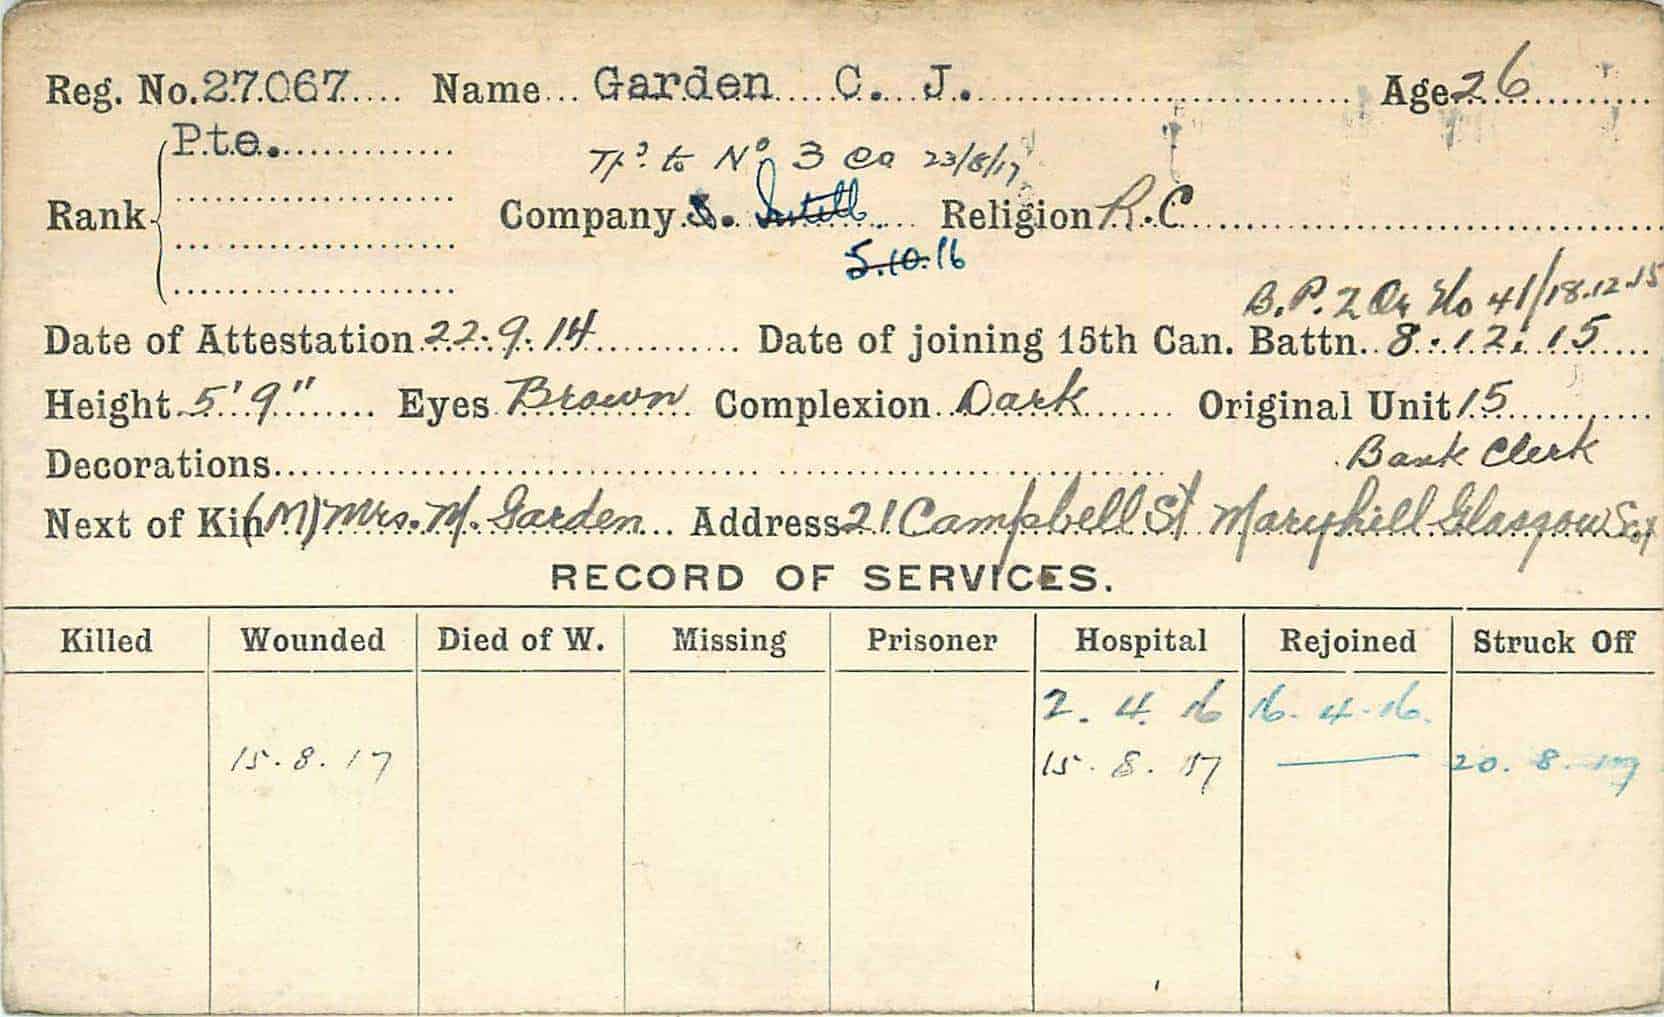 Reg. No. 27067 Name Garden C. J. Age 26
Pte.
Tfd. to No 3 Co 23/8/17
Rank Company Religion R.C
5.10.16
B.P. 2 Or No 41/18.12.15
Date of Attestation 22.9.14 Date of joining 15th Can. Battn. 8.12.15
Height 5'9" Eyes Brown Complexion Dark Original Unit 15
Decorations Bank Clerk
Next of Kin (M) Mrs. M. Garden Address 21 Campbell St Maryhill Glasgow Scot
RECORD OF SERVICES.
Killed Wounded Died of W. Missing Prisoner Hospital Rejoined Struck Off
2.4.16 16.4.16.
15.8.17 15.8.17 — 20.8.17